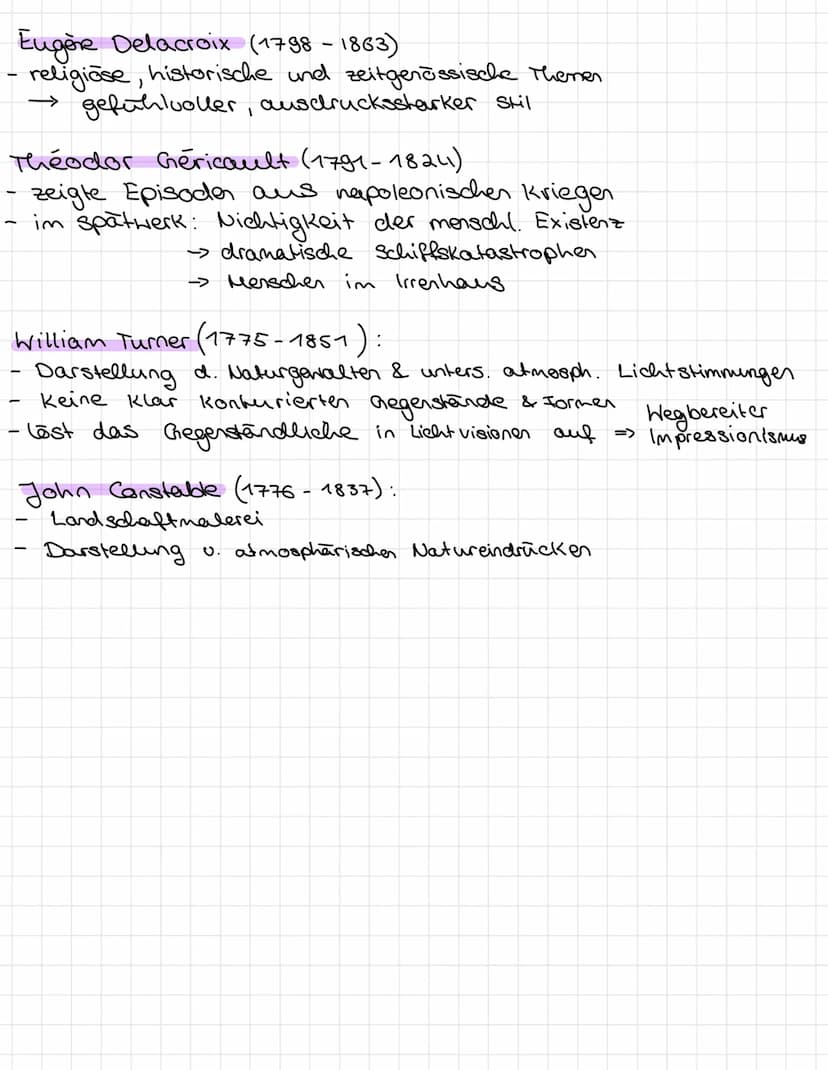 Eugène Delacroix (1798 - 1863)
- religiöse, historische und zeitgenössische Themen
→ gefühlvoller, ausdrucksstarker Stil
Théodor Géricault (1791 - 1824)
- zeigte Episoden aus napoleonischen Kriegen
- im Spätwerk: Nichtigkeit der menschl. Existenz
→ dramatische Schiffskatastrophen
→ Menschen im Irrenhaus
William Turner (1775 - 1851):
- Darstellung d. Naturgewalten & unters. atmosph. Lichtstimmungen
- Keine klar konturierten Gegenstände & Formen
- löst das Gegenständliche in Lichtvisionen auf => Wegbereiter Impressionismus
John Constable (1776 - 1837):
- Landschaftmalerei
- Darstellung v. atmosphärischen Natureindrücken